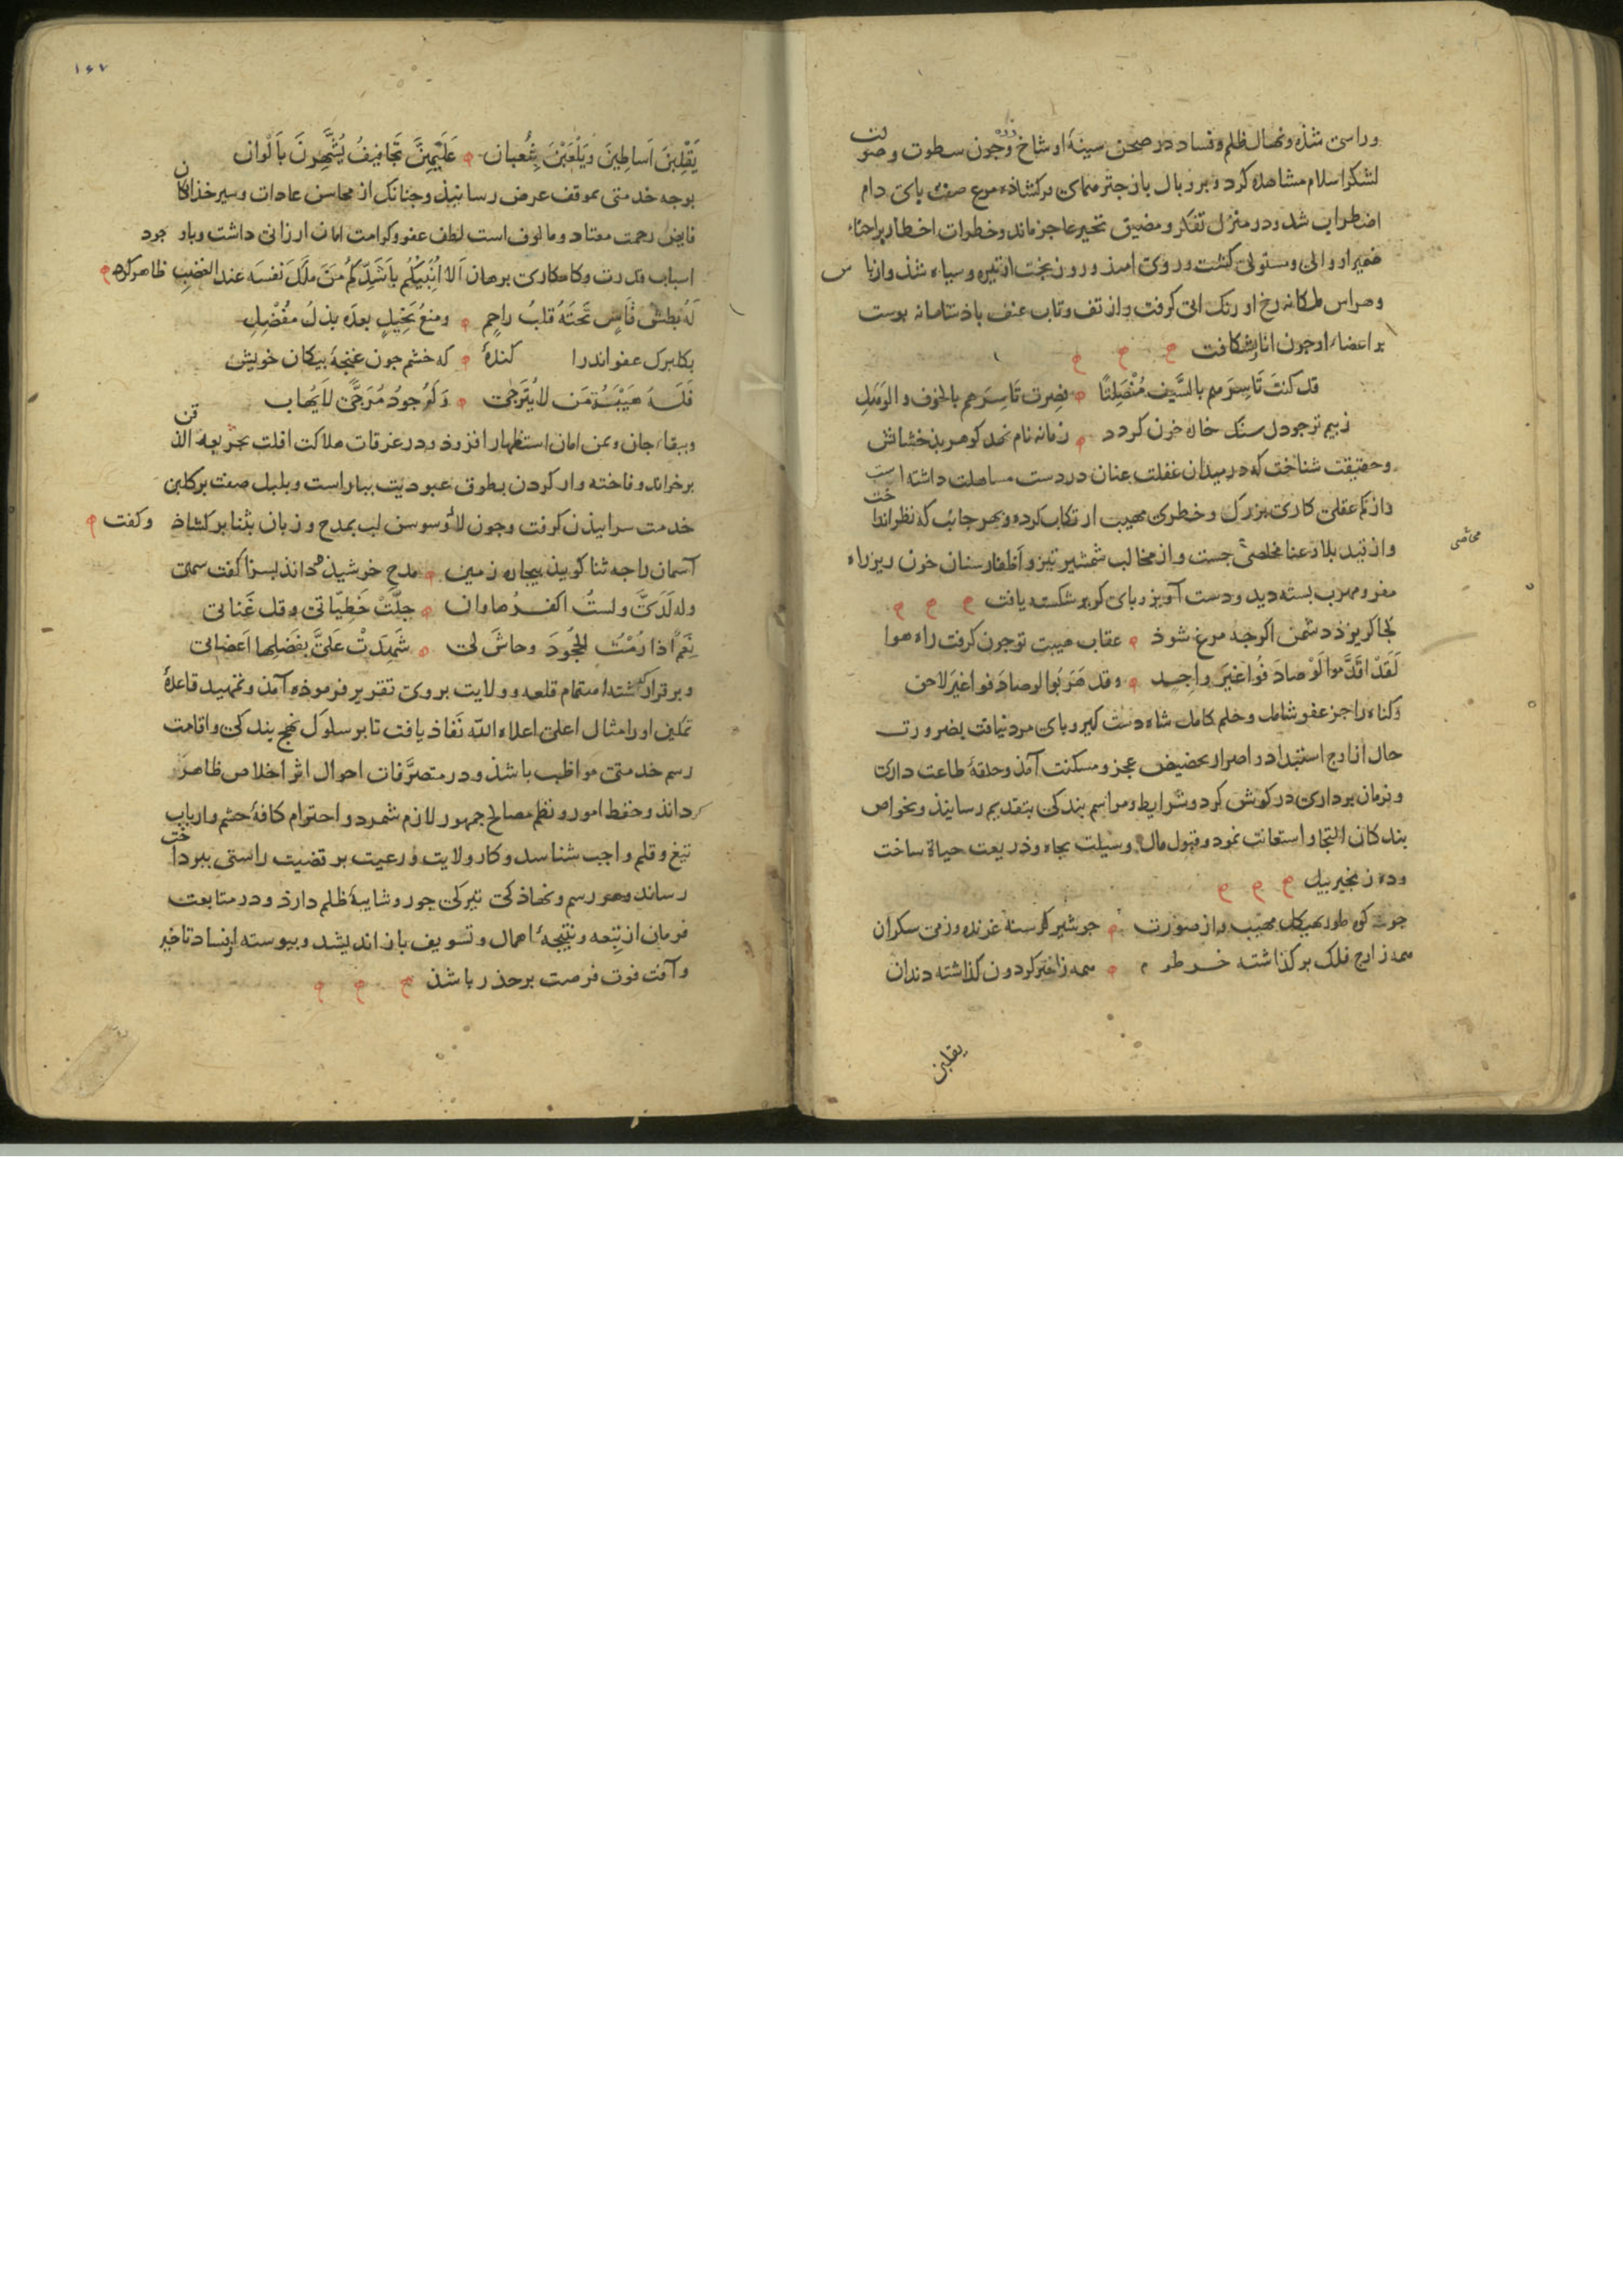 وراسخ شذه ونهال ظلم و فساد در صحن سینهٔ او شاخ زده وچون سطوت و صولت
لشکر اسلام مشاهده کرد و پر و بال باز چتر همای بر کشاذه مرغ صفت بای دام
اضطراب شد و در منزل تفکر و مضیق تحیر عاجز ماند و خطرات اخطار بر احناء
ضمیر او والی و مستولی کشت و روی امیذ و روز بختش تیره و سیاه شذ و از باس
و هراس ملکانه رخ او رنک ابی کرفت و از تف و تاب عنف باذشاهانه بوست
بر اعضاء او جون انار بشکافت
قد كنتَ تَأسِرهم بالسَّيف مُنْصَلِتًا فصِرت تَأسِرهم بالخوف والوَهَلِ
ز بیم تو جو دل سنک خاره خون کردد زمانه نام نهد کوهر بذخشانش
و حقیقت شناخت که در میدان غفلت عنان در دست مساهلت داشته است
و از کم عقلی کاری بزرک و خطری مهیب ارتکاب کرده و بهر جانب که نظر انداخت
و از قید بلا و عنا مخلصی جست و از مخالب شمشیر تیز و اظفار سنان خون ریز راه
مفر و مهرب بسته دید و دست آویز و بای کریز شکسته یافت
کجا کریزد دشمن اکر جه مرغ شوذ عقاب هیبت تو جون کرفت راه هوا
لَقَدْ اقدَموا لَوْ صادَفُوا غيرَ واجِد وقد هَرَبُوا لو صادَفوا غيرَ لاحق
و کناه را جز عفو شامل و حلم کامل شاه دست کیر و بای مرد نیافت بضرورت
حال از اوج استبداد و اصرار بحضیض عجز و مسکنت آمذ و حلقهٔ طاعت داری
و فرمان برداری در کوش کرد و شرایط و مراسم بندکی بتقدیم رسانیذ و بخواص
بندکان التجا و استعانت نمود و قبول مال وسیلت نجاه و ذریعت حیاة ساخت
و ده زنجیر بیل
جو کوه طور بهیکل مهیب و از صورت جو شیر کرسنه غرنده و ز می سکران
همه ز اوج فلک بر کذاشته خرطوم همه ز اختر کردون کذاشته دندان
یقلبن
مخلصی
۱۶۷
يَقْلِبْنَ اَساطِينَ ويَلْعَبْنَ بِثُعبان عَلَيْهِنَّ تَجافِيفُ يُشَهَّرنَ بأَلْوان
بوجه خدمتی بموقف عرض رسانیذ و جنانک از محاسن عادات و سیر خداکان
فایض رحمت معتاد و مالوف است لطف عفو و کرامت امان ارزانی داشت و باوجود
اسباب قدرت و کامکاری برهان اَلا اُنَبِّئكُم بأَشَدِّكم مَن مَلَكَ نَفسَه عند الغضب ظاهر کرد
لَهُ بَطشُ قاسٍ تَحتَهُ قلبُ راحِمٍ ومنعُ بَخيلٍ بعدَه بذلُ مُفْضِلِ
بکلبرک عفو اندرا کندهٔ که خشم جون غنجهٔ بیکان خویش
فَلَهُ هَيْبَةُ مَن لا يُتَرَجَّى وَلَهُ جودُ مُرَجًّى لا يُهاب
و ببقاء جان و یمن امان استظهار افزوذ و در غرقات هلاکت افلت بجریعه الذقن
برخواند و فاخته وار کردن بطوق عبودیت بیاراست و بلبل صفت بر کلبن
خدمت سراییذن کرفت و جون لاله و سوسن لب بمدح و زبان بثنا بر کشاذ و کفت
آسمان را جه ثنا کویذ بیجاره زمین مدح خورشیذ جه دانذ بسزا کفت سهی
وله لَدَيَّ ولستُ اكفرها وان جلَّتْ خَطِيّاتي وقل غَنائي
نِعَمٌ اذا رُمْتُ الجُحُودَ وحاشَ لي شَهِدَتْ عَلَيَّ بفَضلِها اَعضائي
و بر قرار کذشته اهتمام قلعه و ولایت بر وی تقریر فرموذه آمذ و بتمهید قاعدهٔ
تمکین او را مثال اعلی اعلاه الله نفاذ یافت تا بر سلوک نهج بندکی و اقامت
رسم خدمتی مواظب باشذ و در متصرَّفات احوال اثر اخلاص ظاهر
کرداند و حفظ امور و نظم مصالح جمهور لازم شمرد و احترام کافهٔ حشم و ارباب
تیغ و قلم واجب شناسد و کار ولایت و رعیت بر قضیت راستی ببرداخت
رساند و هر رسم و نهاذ کی تیرکی جور و شایبهٔ ظلم دارذ و در متابعت
فرمان از تبعه و نتیجهٔ اهمال و تسویف باز اندیشد و بیوسته از فساد تاخیر
و آفت فوت فرصت بر حذر باشذ